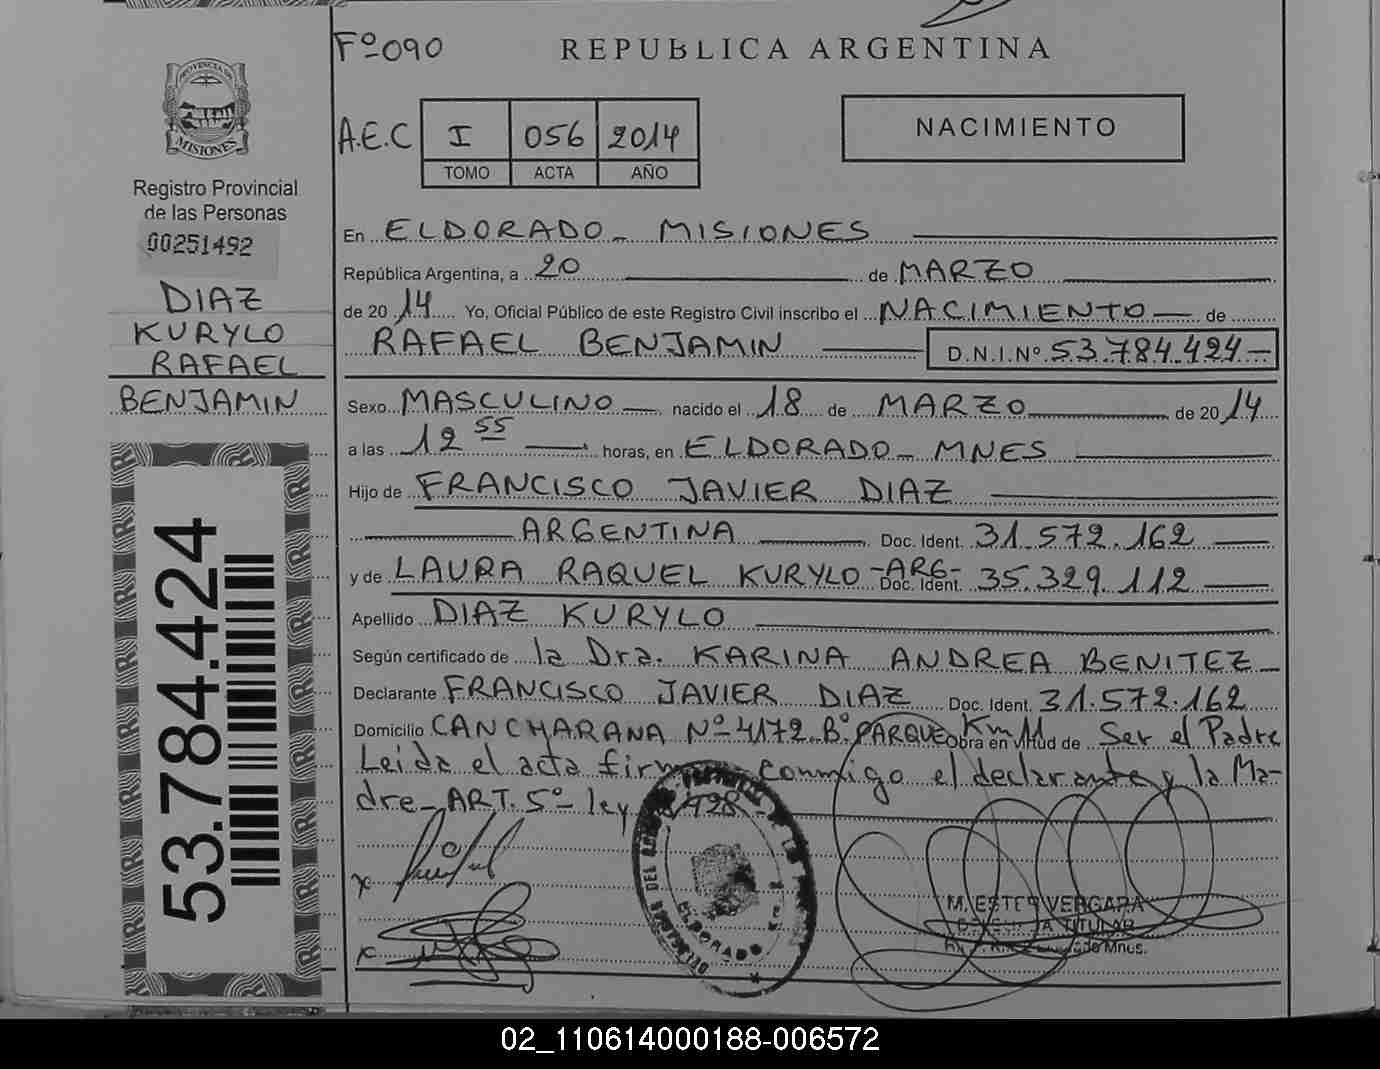 Fº 090
REPUBLICA ARGENTINA
PROVINCIA DE
MISIONES
Registro Provincial
de las Personas
00251492
DIAZ
KURYLO
RAFAEL
BENJAMIN
53.784.424
A.E.C I 056 2014
TOMO ACTA AÑO
NACIMIENTO
En ELDORADO - MISIONES
República Argentina, a 20 de MARZO
de 2014 Yo, Oficial Público de este Registro Civil inscribo el NACIMIENTO de
RAFAEL BENJAMIN D.N.I.Nº 53.784.424
Sexo MASCULINO nacido el 18 de MARZO de 2014
a las 12 55 horas, en ELDORADO - MNES
Hijo de FRANCISCO JAVIER DIAZ
ARGENTINA Doc. Ident. 31.572.162
y de LAURA RAQUEL KURYLO -ARG- Doc. Ident. 35.329.112
Apellido DIAZ KURYLO
Según certificado de la Dra. KARINA ANDREA BENITEZ
Declarante FRANCISCO JAVIER DIAZ Doc. Ident. 31.572.162
Domicilio CANCHARANA Nº 4172 Bº PARQUE Km 11 Obra en virtud de Ser el Padre
Leida el acta conmigo el declarante y la Ma-
dre - ART. 5º - ley
ELDORADO
M. ESTER VERGARA
TITULAR
Mnes.
02_110614000188-006572